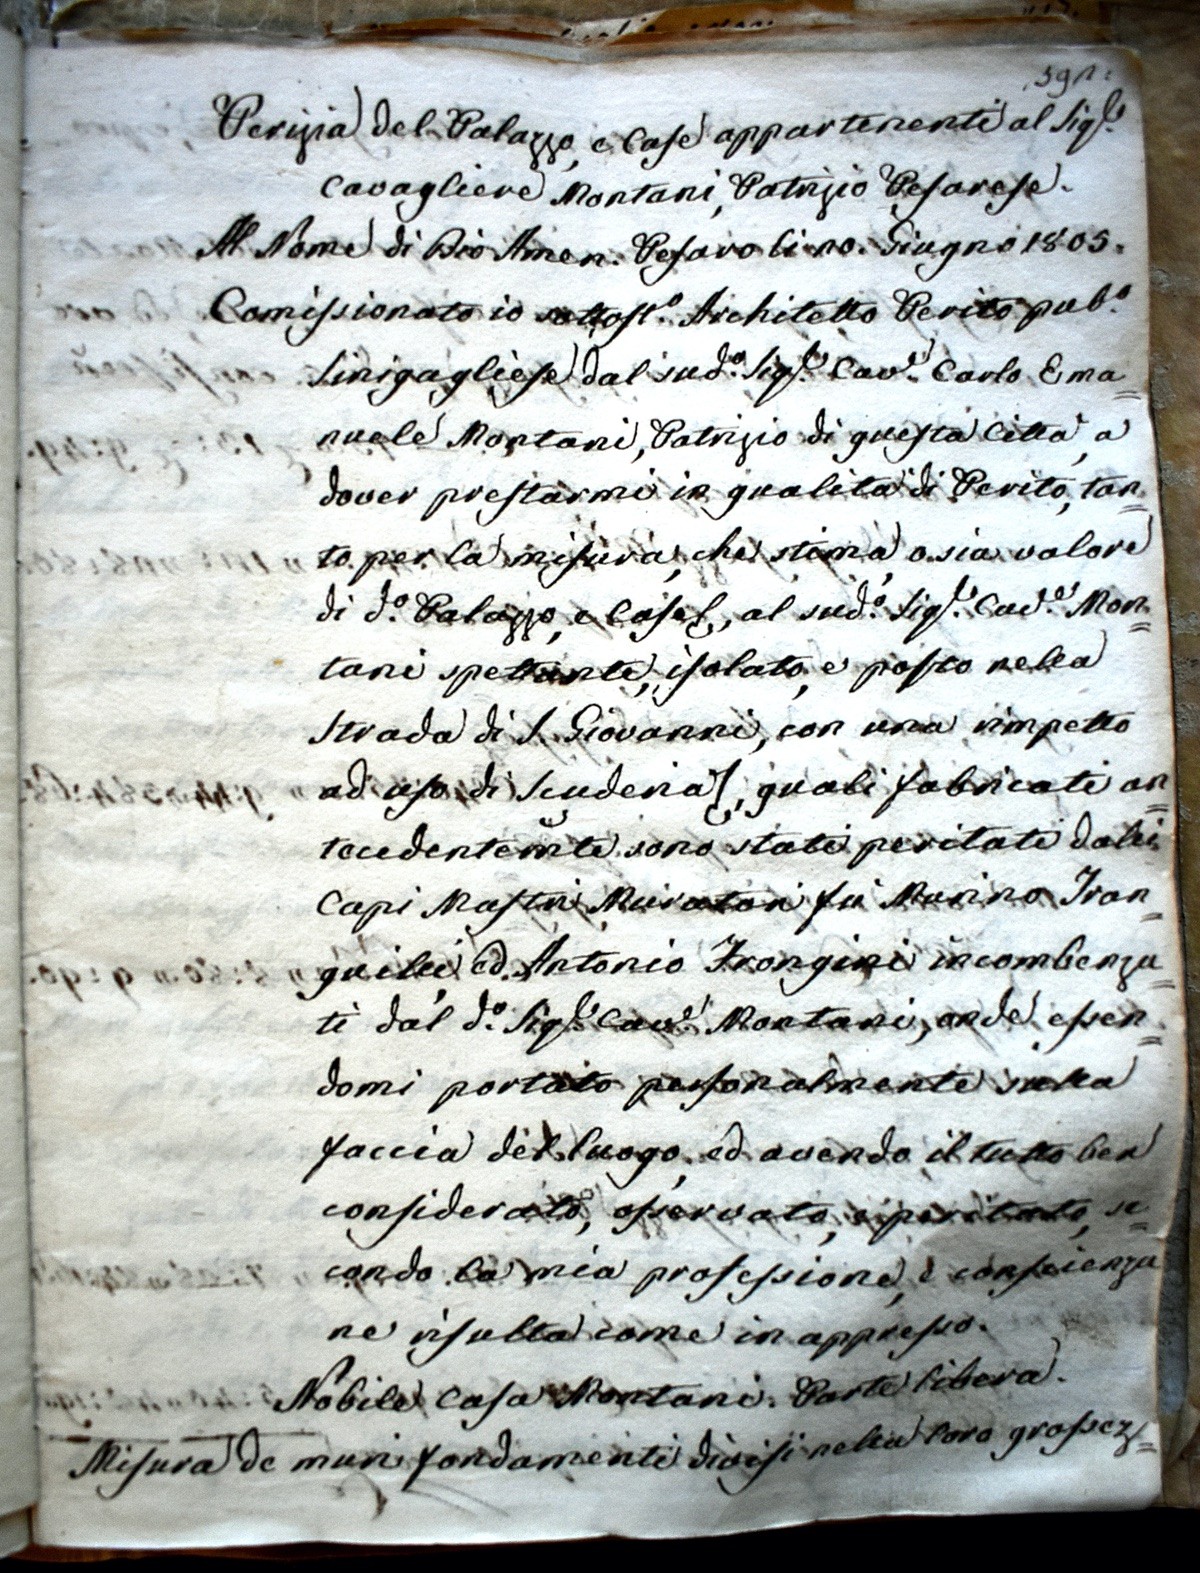 Perizia del Palazzo, e Case appartenenti al Sigr.
Cavagliere Montani, Patrizio Pesarese.
Al Nome di Dio Amen. Pesaro li 10. Giugno 1805.
Comissionato io sottost.º Architetto Perito pub.º
Sinigagliese dal sud.º Sigr. Cav.r Carlo Ema=
nuele Montani, Patrizio di questa Città, a
dover prestarmi in qualità di Perito, tan=
to per la misura, che stima, o sia valore
di d.º Palazzo, e Case, al sud.º Sigr. Cav.r Mon=
tani spettante, isolato, e posto nella
Strada di S. Giovanni, con una rimpetto
ad uso di Scuderia, quali fabricati an=
tecedentemte sono stati peritati dalli
Capi Mastri Muratori fù Marino Tran=
quilli, ed Antonio Frongini incombenza=
ti dal d.º Sigr. Cav.r Montani, onde essen=
domi portato personalmente sulla
faccia del luogo, ed avendo il tutto ben
considerato, osservato, e peritato, se=
condo la mia professione, e conscienza
ne risulta come in appresso.
Nobile Casa Montani. Parte libera.
Misura de muri fondamenti divisi nella loro grossez=